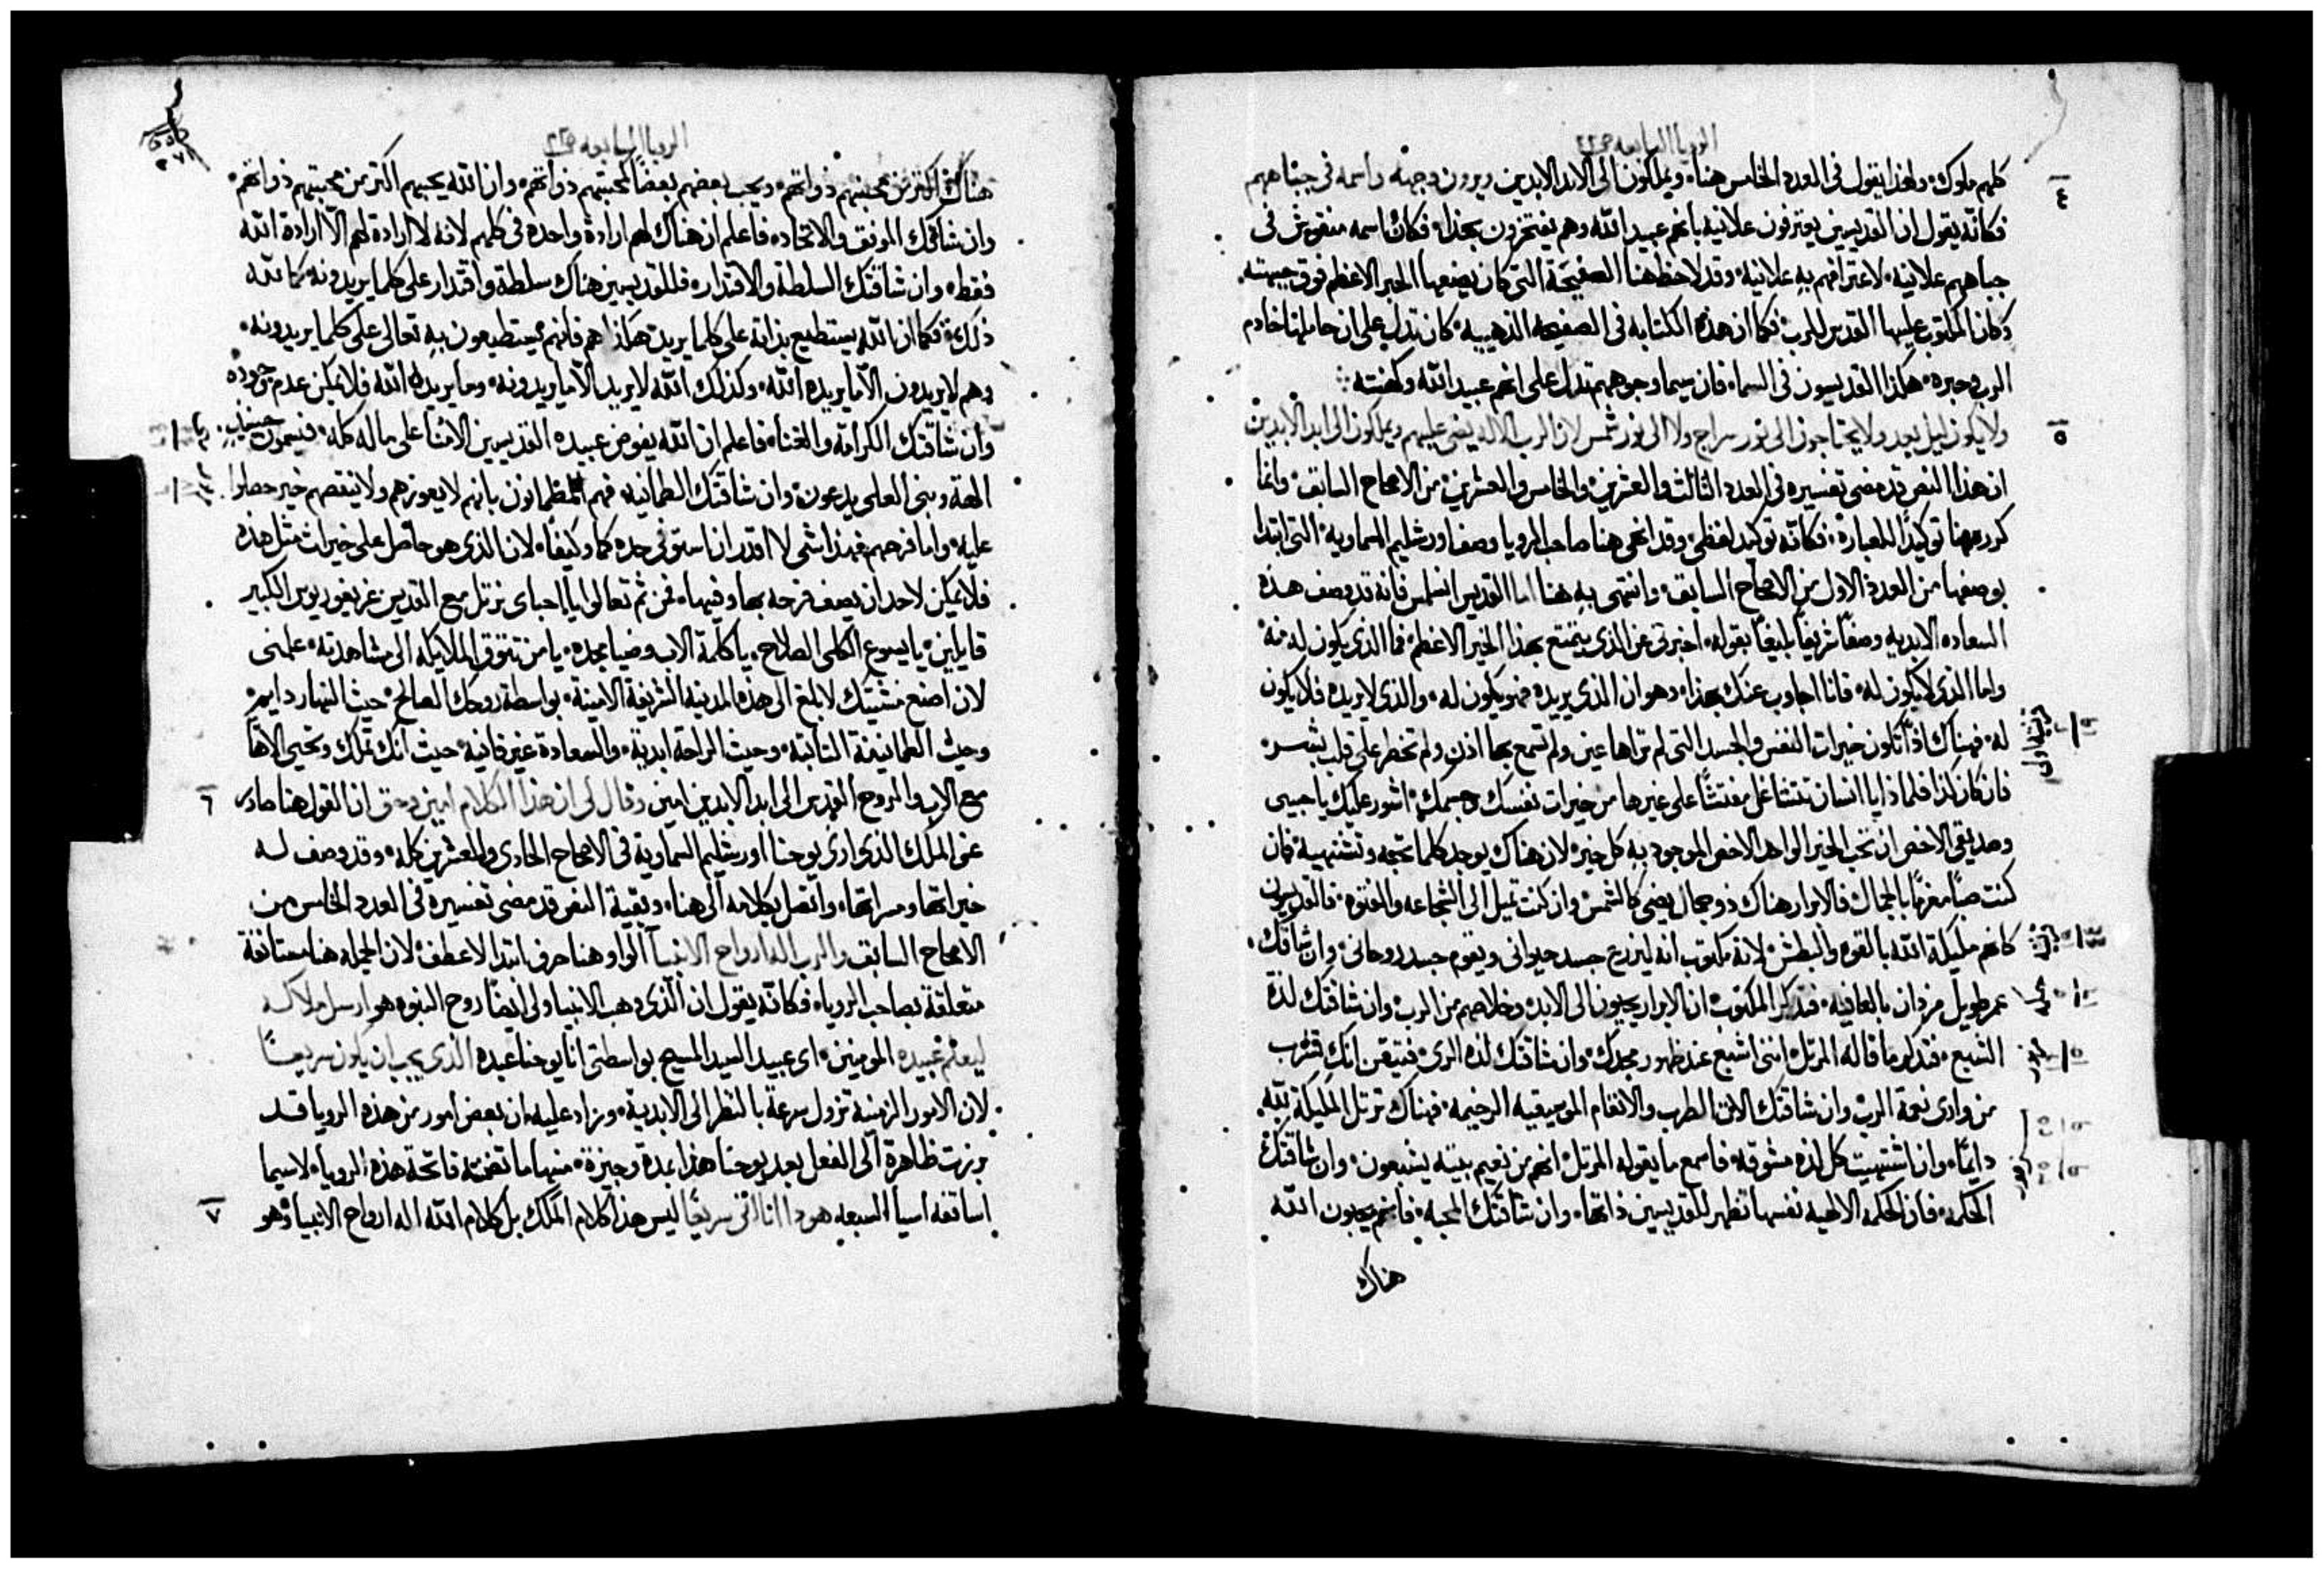 الرويا السابعه
كلهم ملوك، ولهذا يقول في العدد الخامس هنا، ويملكون الى الابد الابدين ويرون وجهه واسمه في جباههم
٤
فكانّه يقول ان القديسين يعترفون علانيه بانهم عبيد الله وهم يفتخرون بهذا، فكان اسمه منقوش في
جباههم علانيه، لاعترافهم بهِ علانية، وقد لاحظ هنا الصفيحة التي كان يضعها الحبر الاعظم فوق جبهته
وكان المكتوب عليها القدس للرب، فكما ان هذه الكتابه في الصفيحه الذهبيه، كان تدل على ان حاملها خادم
الرب وحبره، هكذا القديسون في السماء فان سيما وجوههم تدل على انهم عبيد الله وكهنته
ولا يكون ليل بعد ولا يحتاجون الى نور سراج ولا الى نور شمس لان الرب الاله يضي عليهم ويملكون الى ابد الابدين
٥
ان هذا النص قد مضى تفسيره في العدد الثالث والعشرين، والخامس والعشرين، من الاصحاح السابق، وانما
كرر ههنا توكيدًا للعبارة، فكانّه توكيد لفظي، وقد انهى هنا صاحب الرويا وصف اورشليم السماوية، التي ابتدا
بوصفها من العدد الاول من الاصحاح السابق، وانتهى بهِ هنا اما القديس انسلمس فانه قد وصف هذه
السعاده الابديه وصفًا شريفًا بليغًا بقوله، اخبرني عن الذي يتمتع بهذا الخير الاعظم، فما الذي يكون له منه
واما الذي لا يكون له، فانا اجاوب عنك بهذا، وهو ان الذي يريده فهو يكون له، والذي لا يريده فلا يكون
له، فهناك اذًا تكون خيرات النفس والجسد التي لم تراها عين ولم تسمع بها اذن، ولم تخطر على قلب بشر
فان كان كذا فلماذا يا انسان تتشاغل مفتشًا على غيرها من خيرات نفسك وجسمك، اشور عليك يا حبيبي
وصديقي الاخص ان تحب الخير الواحد الاخص الموجود بهِ كل خير، لان هناك يوجد كلما تحبه وتشتهيه، فان
كنت صبًا مغرمًا بالجمال، فالابرار هناك ذو جمال يضي كالشمس، وان كنت تميل الى الشجاعه والفتوه، فالقديسون
كانهم مليكة الله بالقوه والبطش، لانه مكتوب انه ليزرع جسد حيواني ويقوم جسد روحاني، وان شاقك
عمر طويل مزدان بالعافيه، فتذكر المكتوب، ان الابرار يحيون الى الابد، وخلاصهم من الرب، وان شاقتك لذة
الشبع، فتذكر ما قاله المرتل، انني اشبع عند ظهور مجدك، وان شاقتك لذه الري، فتيقن انك تشرب
من وادي نعمة الرب، وان شاقتك الاذن الطرب والانغام الموسيقيه الرخيمه، فهناك ترتل المليكة لله
دايمًا، وان اشتهيت كل لذه مشوقه، فاسمع ما يقوله المرتل، انهم من نعيم بيته يشبعون، وان شاقتك
الحكمه، فان الحكمه الالهيه نفسها تظهر للقديسين ذاتها، وان شاقتك المحبه، فانهم يحبون الله
هناك
الرويا السابعه
هناك اكثر من محبتهم ذواتهم، ويحب بعضهم بعضًا كمحبتهم ذواتهم، وان الله يحبهم اكثر من محبتهم ذواتهم،
وان شاقك الموفق والاتحاد، فاعلم ان هناك لهم ارادة واحده في كلهم لانه لا ارادة لهم الّا ارادة الله
فقط، وان شاقتك السلطة والاقتدار، فللقديسين هناك سلطة واقتدار على كلما يريدونه كما لله
ذلك، فكما ان الله يستطيع بذاته على كلما يريد، هكذا هم فانهم يستطيعون بهِ تعالى على كلما يريدونه،
وهم لا يريدون الّا ما يريده الله، وكذلك الله لا يريد الّا ما يريدونه، وما يريده الله فلا يمكن عدم وجوده
وان شاقتك الكرامة والغناء، فاعلم ان الله يفوض عبيده القديسين الامنا على ماله كله، فيسمون حينيذٍ
الهة وبني العلي يدعون، وان شاقتك الطمانيه، فهم المطمانون بانهم لا يعوزهم ولا ينقصهم خير حصلوا
عليه، واما فرحهم فهذا شي لا اقدر ان استوفي حده كمًا وكيفًا، لان الذي هو حاصل على خيرات مثل هذه
فلا يمكن لاحد ان يصف فرحه بها وفيها، فمن ثم تعالوا يا احباي نرتل مع القديس غريغوريوس الكبير
قايلين، يا يسوع الكلي الصلاح، يا كلمة الاب وضيا مجده، يا من تتوق الملايكه الى مشاهدته، علمني
لان اصنع مشيتك لابلغ الى هذه المدينه الشريفة الامينة، بواسطة روحك الصالح، حيث النهار دايم،
وحيث الطمانينة الثابتة، وحيث الراحة ابدية، والسعادة غير فانيه، حيث انك تملك وتحيي الاهًا
مع الاب والروح القدس الى ابد الابدين امين وقال لي ان هذا الكلام امين وحق ان القول هنا صادر
٦
عن الملك الذي ارى يوحنا اورشليم السماوية في الاصحاح الحادي والعشرين كله، وقد وصف له
خيراتها ومسراتها، واتصل بكلامه الى هنا، وبقية النص قد مضى تفسيره في العدد الخامس من
الاصحاح السابق والرب اله ارواح الانبيا الواو هنا حرف ابتدا لا عطف، لان الجمله هنا مستانفة
متعلقة بصاحب الرويا، فكانّه يقول ان الذي وهب الانبيا ولي ايضًا روح النبوه هو ارسل ملاكه
ليعلم عبيده المومنين، اي عبيد السيد المسيح بواسطتي انا يوحنا عبده الذي يجب ان يكون سريعًا
لان الامور الزمنية تزول سرعة بالنظر الى الابدية، وزاد عليه، ان بعض امور من هذه الرويا قد
برزت ظاهرة الى الفعل بعد يوحنا هذا بمدة وجيزة، منها ما تضمنته فاتحة هذه الرويا، لاسيما
اساقفه اسيا السبعه هودا انا اتي سريعًا ليس هذا كلام الملك بل كلام الله اله ارواح الانبيا، وهو
٧